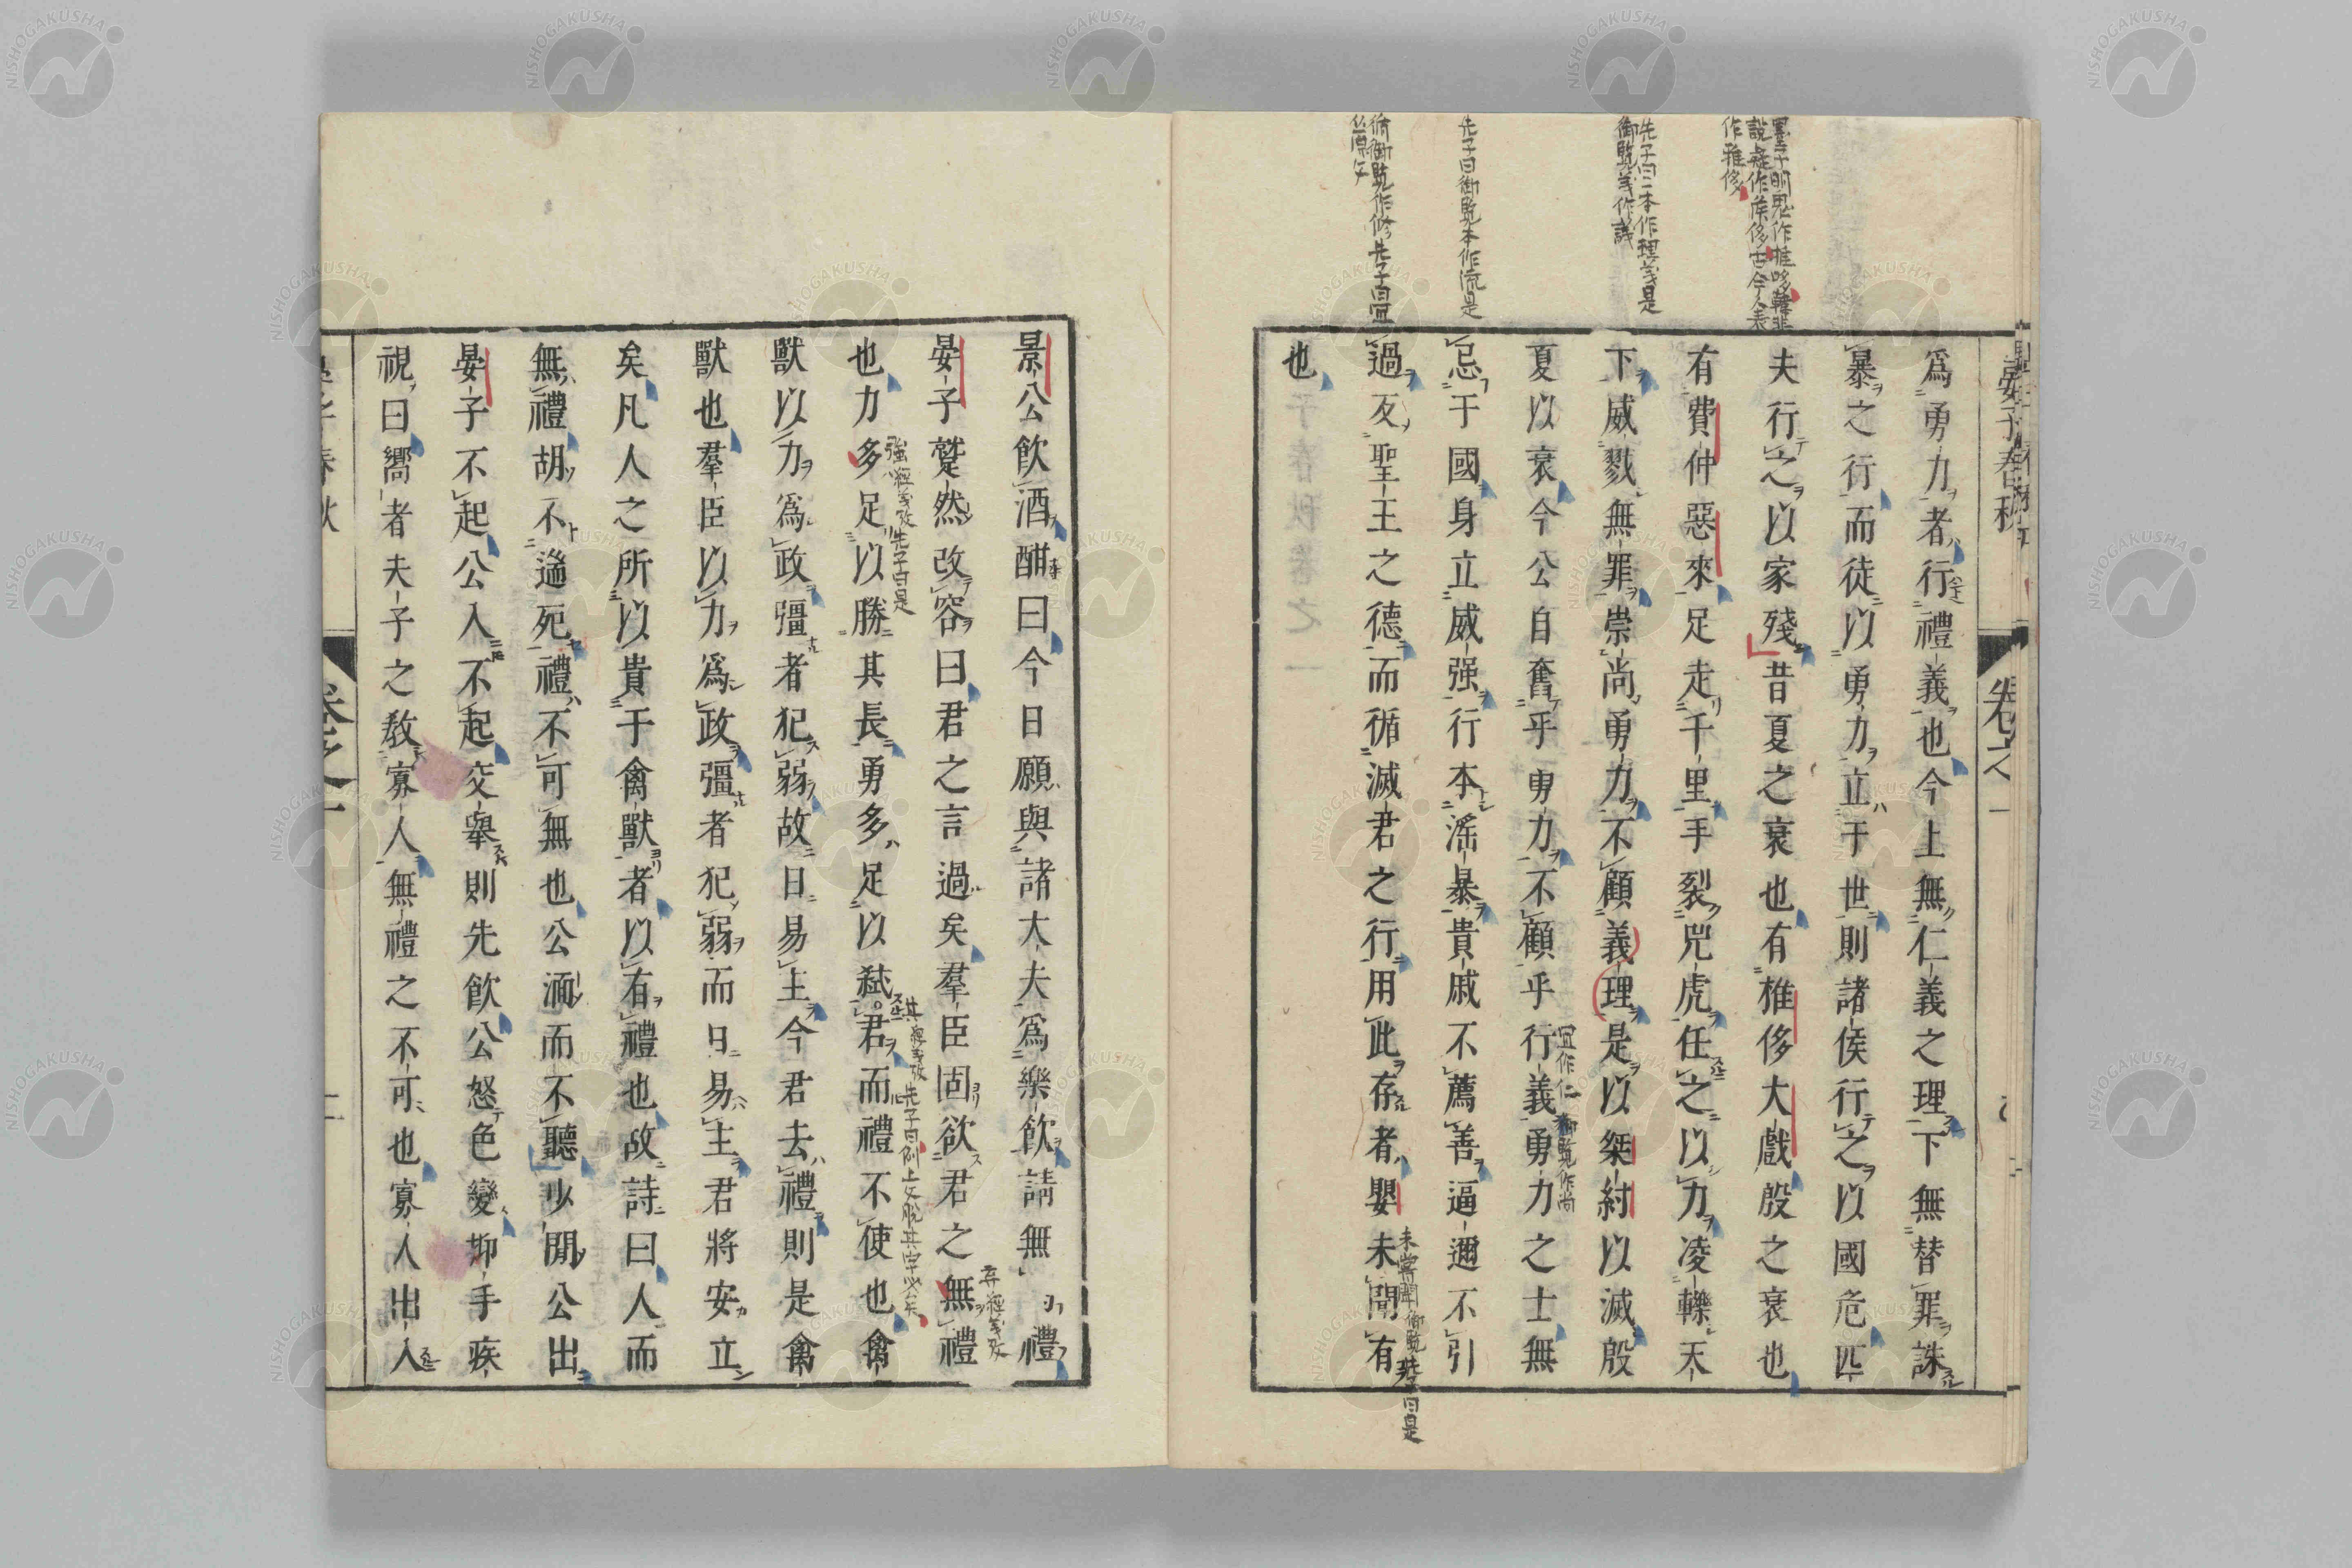 墨子明鬼作推哆韓非
說疑作侯侈古今人表
作雅侈
先子曰一本作理義是
御覽義作議
先子曰御覽本作流是
循御覽作修先子曰宜
晏子春秋
卷之一
爲勇力者行禮義也今上無仁義之理下無替罪誅
暴之行而徒以勇力立于世則諸侯行之以國危匹
夫行之以家殘昔夏之衰也有椎侈大戲殷之衰也
有費仲惡來足走千里手裂兕虎任之以力凌轢天
下威戮無罪崇尚勇力不顧義理是以桀紂以滅殷
夏以衰今公自奮乎勇力不顧乎行義勇力之士無
宜作仁 御覽作尚
忌于國身立威强行本淫暴貴戚不薦善逼邇不引
過反聖王之德而循滅君之行用此存者嬰未聞有
未嘗聞御覽先子曰是
也
景公飮酒酣曰今日願與諸大夫爲樂飮請無禮
晏子蹵然改容曰君之言過矣羣臣固欲君之無禮
也力多足以勝其長勇多足以弑君而禮不使也禽
強經義攷先子曰是
其經義攷先子曰例上文脫其字必矣
獸以力爲政彊者犯弱故日易主今君去禮則是禽
獸也羣臣以力爲政彊者犯弱而日易主君將安立
矣凡人之所以貴于禽獸者以有禮也故詩曰人而
無禮胡不遄死禮不可無也公湎而不聽少閒公出
晏子不起公入不起交舉則先飮公怒色變抑手疾
視曰嚮者夫子之敎寡人無禮之不可也寡人出入
晏子春秋
卷之一
二
NISHOGAKUSHA